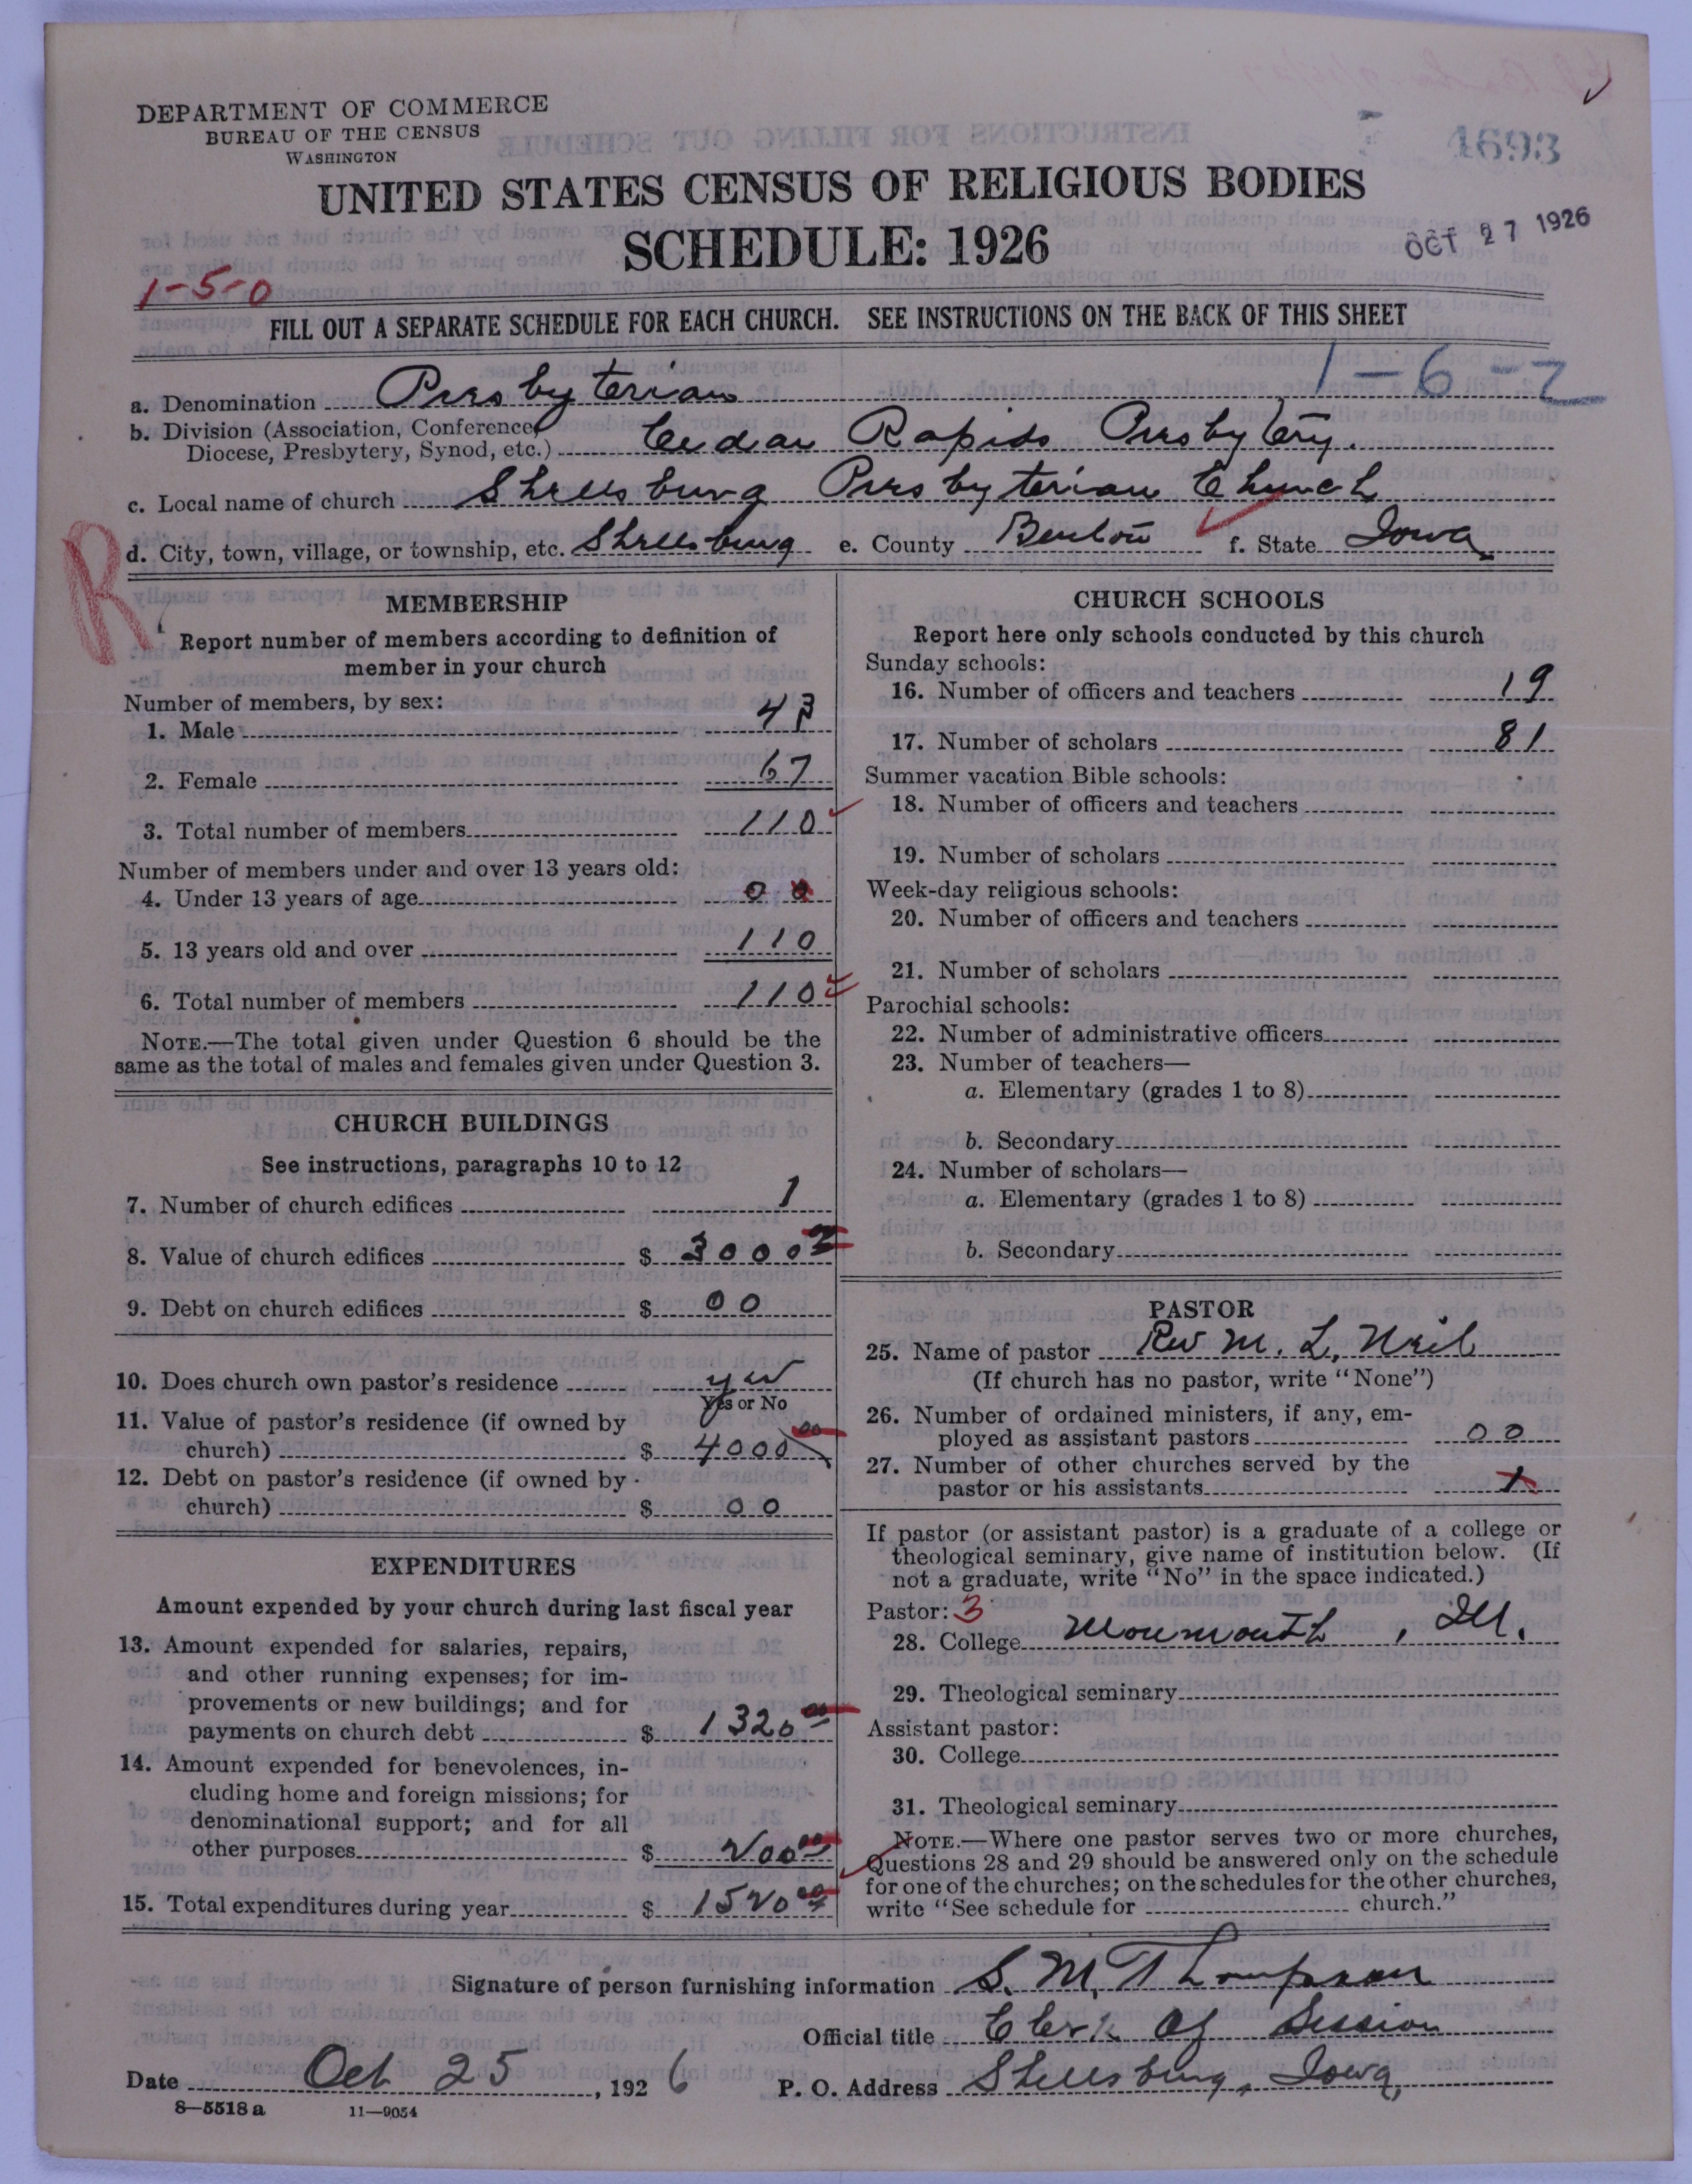 DEPARTMENT OF COMMERCE
BUREAU OF THE CENSUS
WASHINGTON
4693
UNITED STATES CENSUS OF RELIGIOUS BODIES
SCHEDULE: 1926
OCT 27 1926
1-5-0
FILL OUT A SEPARATE SCHEDULE FOR EACH CHURCH. SEE INSTRUCTIONS ON THE BACK OF THIS SHEET
1-6-2
a. Denomination Presbyterian
b. Division (Association, Conference,
Diocese, Presbytery, Synod, etc.) Cedar Rapids Presbytery.
c. Local name of church Shellsburg Presbyterian Church
d. City, town, village, or township, etc. Shellsburg e. County Benton f. State Iowa
R
MEMBERSHIP
Report number of members according to definition of
member in your church
Number of members, by sex:
1. Male 43
2. Female 67
3. Total number of members 110
Number of members under and over 13 years old:
4. Under 13 years of age 0 0
5. 13 years old and over 110
6. Total number of members 110
NOTE.—The total given under Question 6 should be the
same as the total of males and females given under Question 3.
CHURCH BUILDINGS
See instructions, paragraphs 10 to 12
7. Number of church edifices 1
8. Value of church edifices $ 3000
9. Debt on church edifices $ 00
10. Does church own pastor's residence yes
Yes or No
11. Value of pastor's residence (if owned by
church) $ 4000 00
12. Debt on pastor's residence (if owned by
church) $ 00
EXPENDITURES
Amount expended by your church during last fiscal year
13. Amount expended for salaries, repairs,
and other running expenses; for im-
provements or new buildings; and for
payments on church debt $ 1320 00
14. Amount expended for benevolences, in-
cluding home and foreign missions; for
denominational support; and for all
other purposes $ 200 00
15. Total expenditures during year $ 1520 00
CHURCH SCHOOLS
Report here only schools conducted by this church
Sunday schools:
16. Number of officers and teachers 19
17. Number of scholars 81
Summer vacation Bible schools:
18. Number of officers and teachers
19. Number of scholars
Week-day religious schools:
20. Number of officers and teachers
21. Number of scholars
Parochial schools:
22. Number of administrative officers
23. Number of teachers—
a. Elementary (grades 1 to 8)
b. Secondary
24. Number of scholars—
a. Elementary (grades 1 to 8)
b. Secondary
PASTOR
25. Name of pastor Rev M. L. Neil
(If church has no pastor, write "None")
26. Number of ordained ministers, if any, em-
ployed as assistant pastors 00
27. Number of other churches served by the
pastor or his assistants 1
If pastor (or assistant pastor) is a graduate of a college or
theological seminary, give name of institution below. (If
not a graduate, write "No" in the space indicated.)
Pastor: 3
28. College Monmouth, Ill.
29. Theological seminary
Assistant pastor:
30. College
31. Theological seminary
NOTE.—Where one pastor serves two or more churches,
Questions 28 and 29 should be answered only on the schedule
for one of the churches; on the schedules for the other churches,
write "See schedule for church."
Signature of person furnishing information S. M. Thompson
Official title Clerk Of Session
Date Oct 25, 1926 P. O. Address Shellsburg, Iowa,
8—5518 a 11—9054